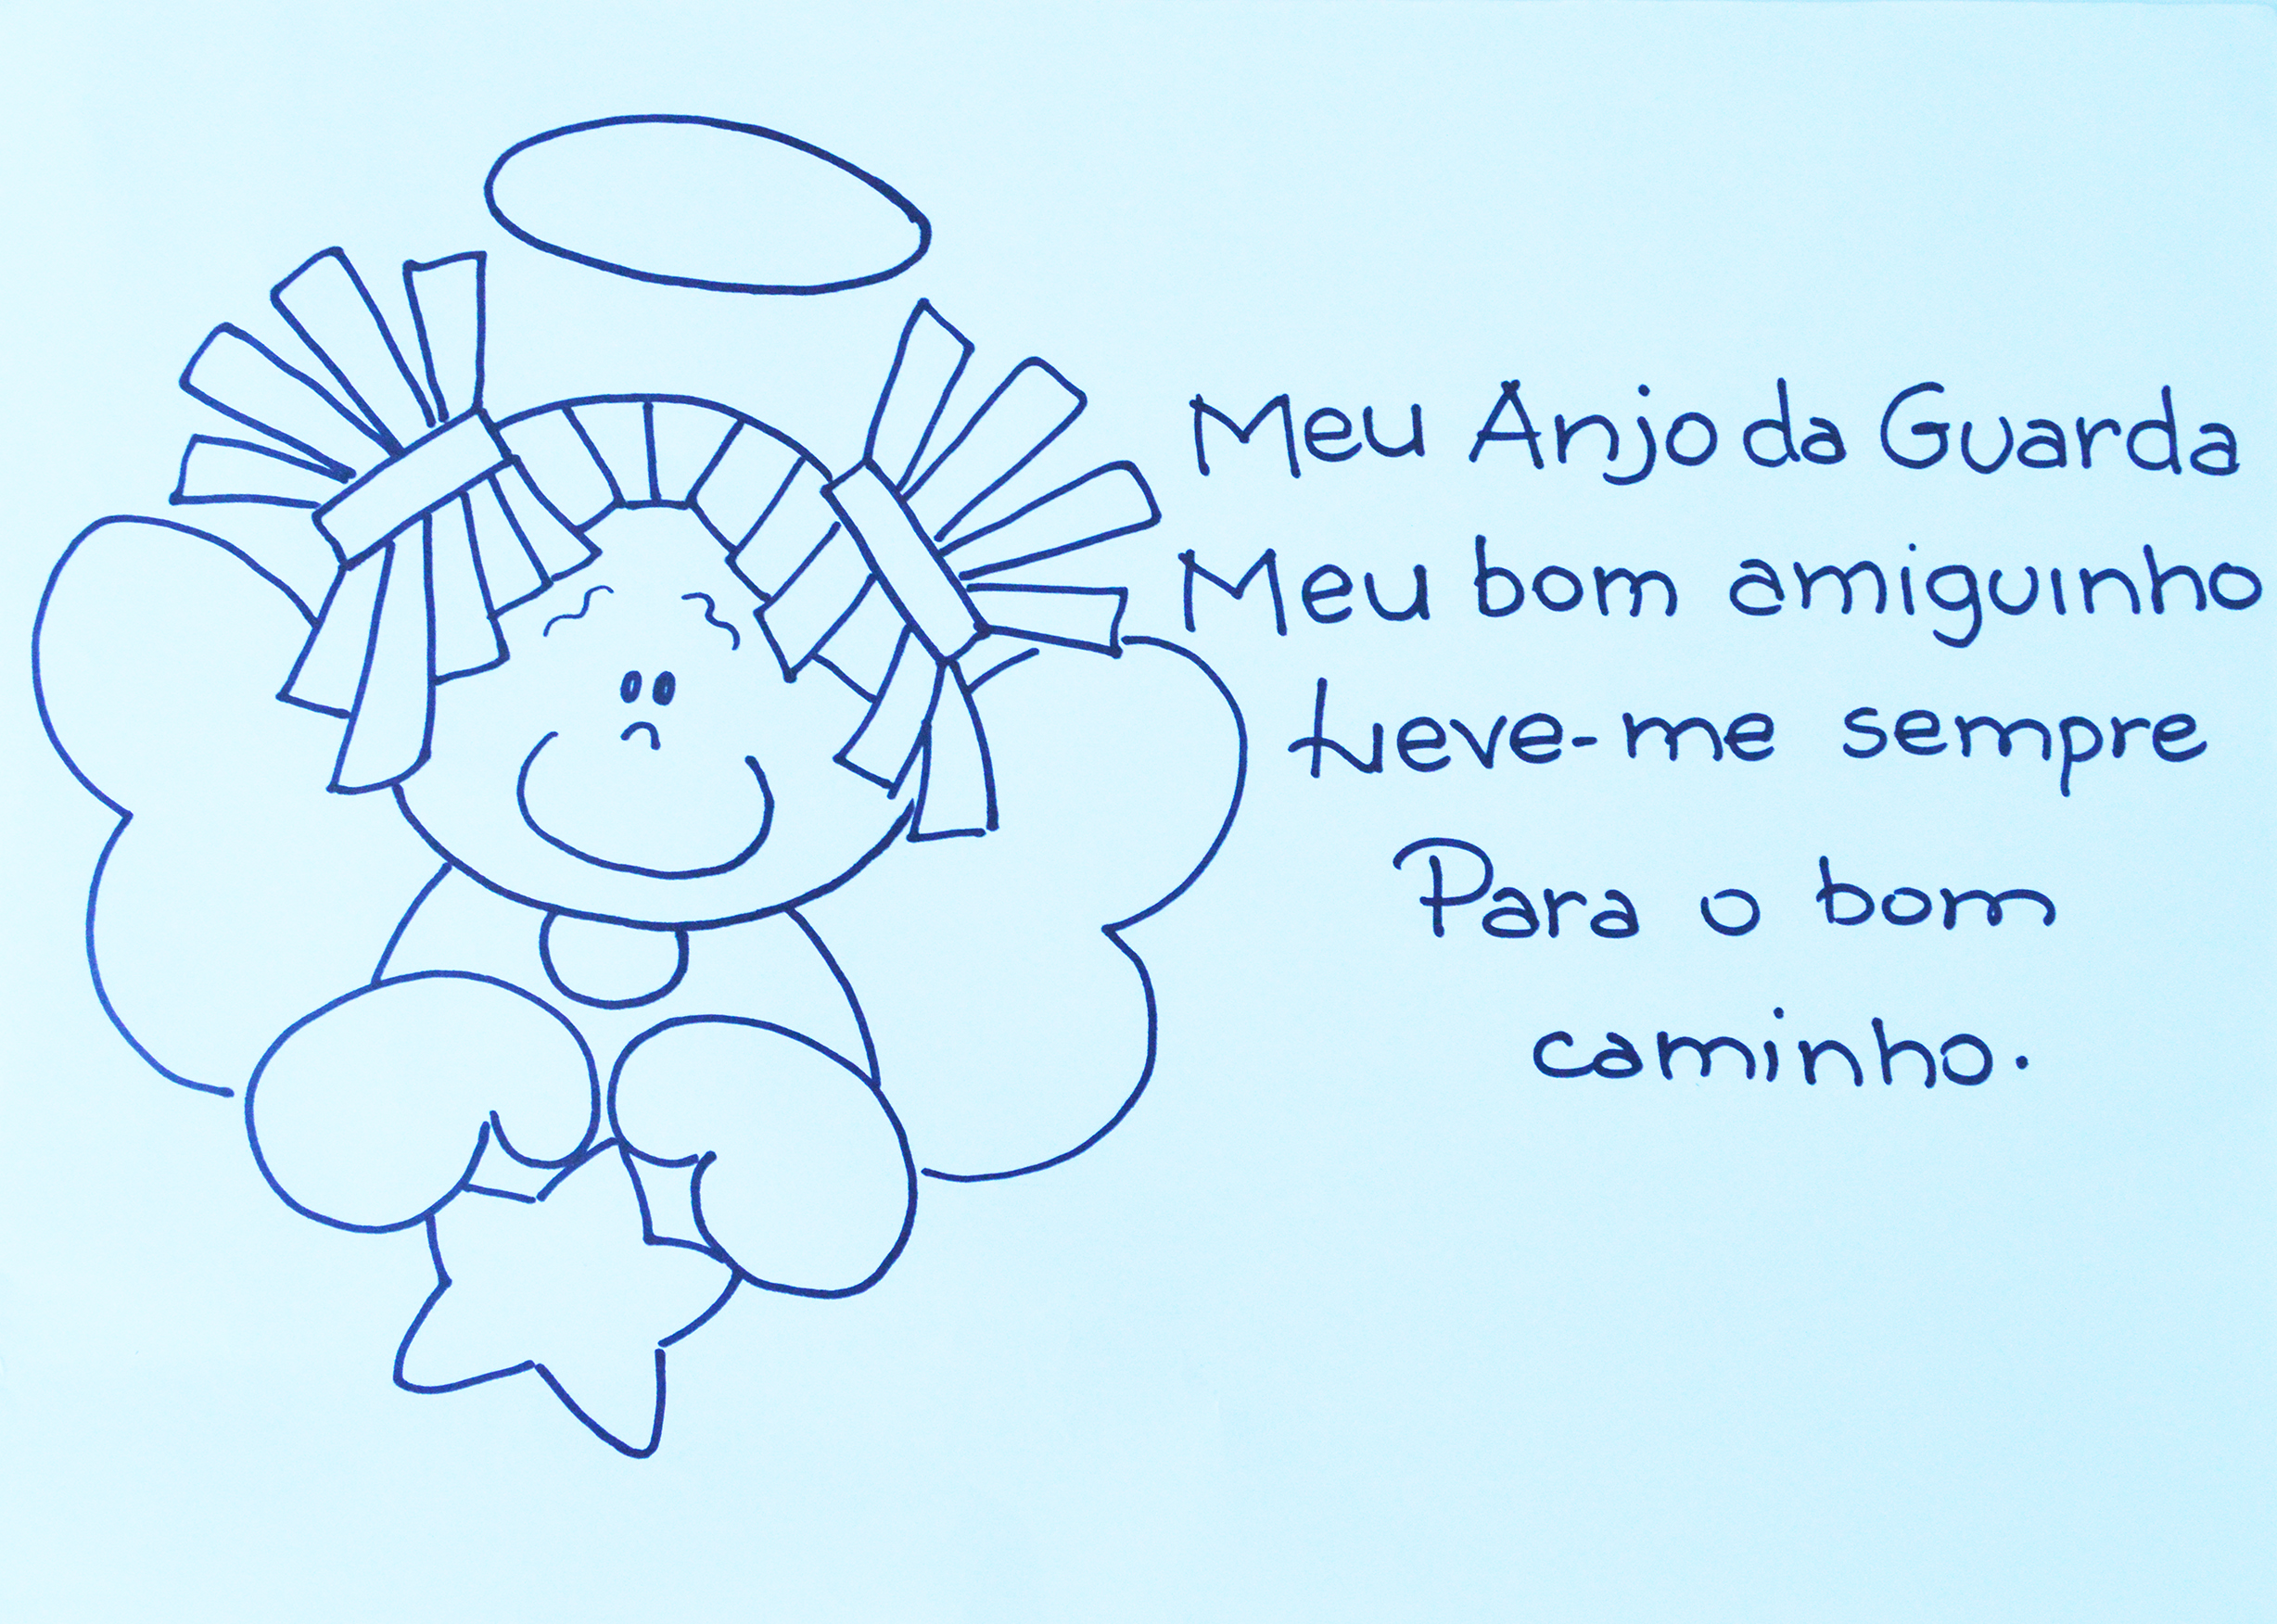 Meu Anjo da Guarda
Meu bom amiguinho
Leve-me sempre
Para o bom
caminho.